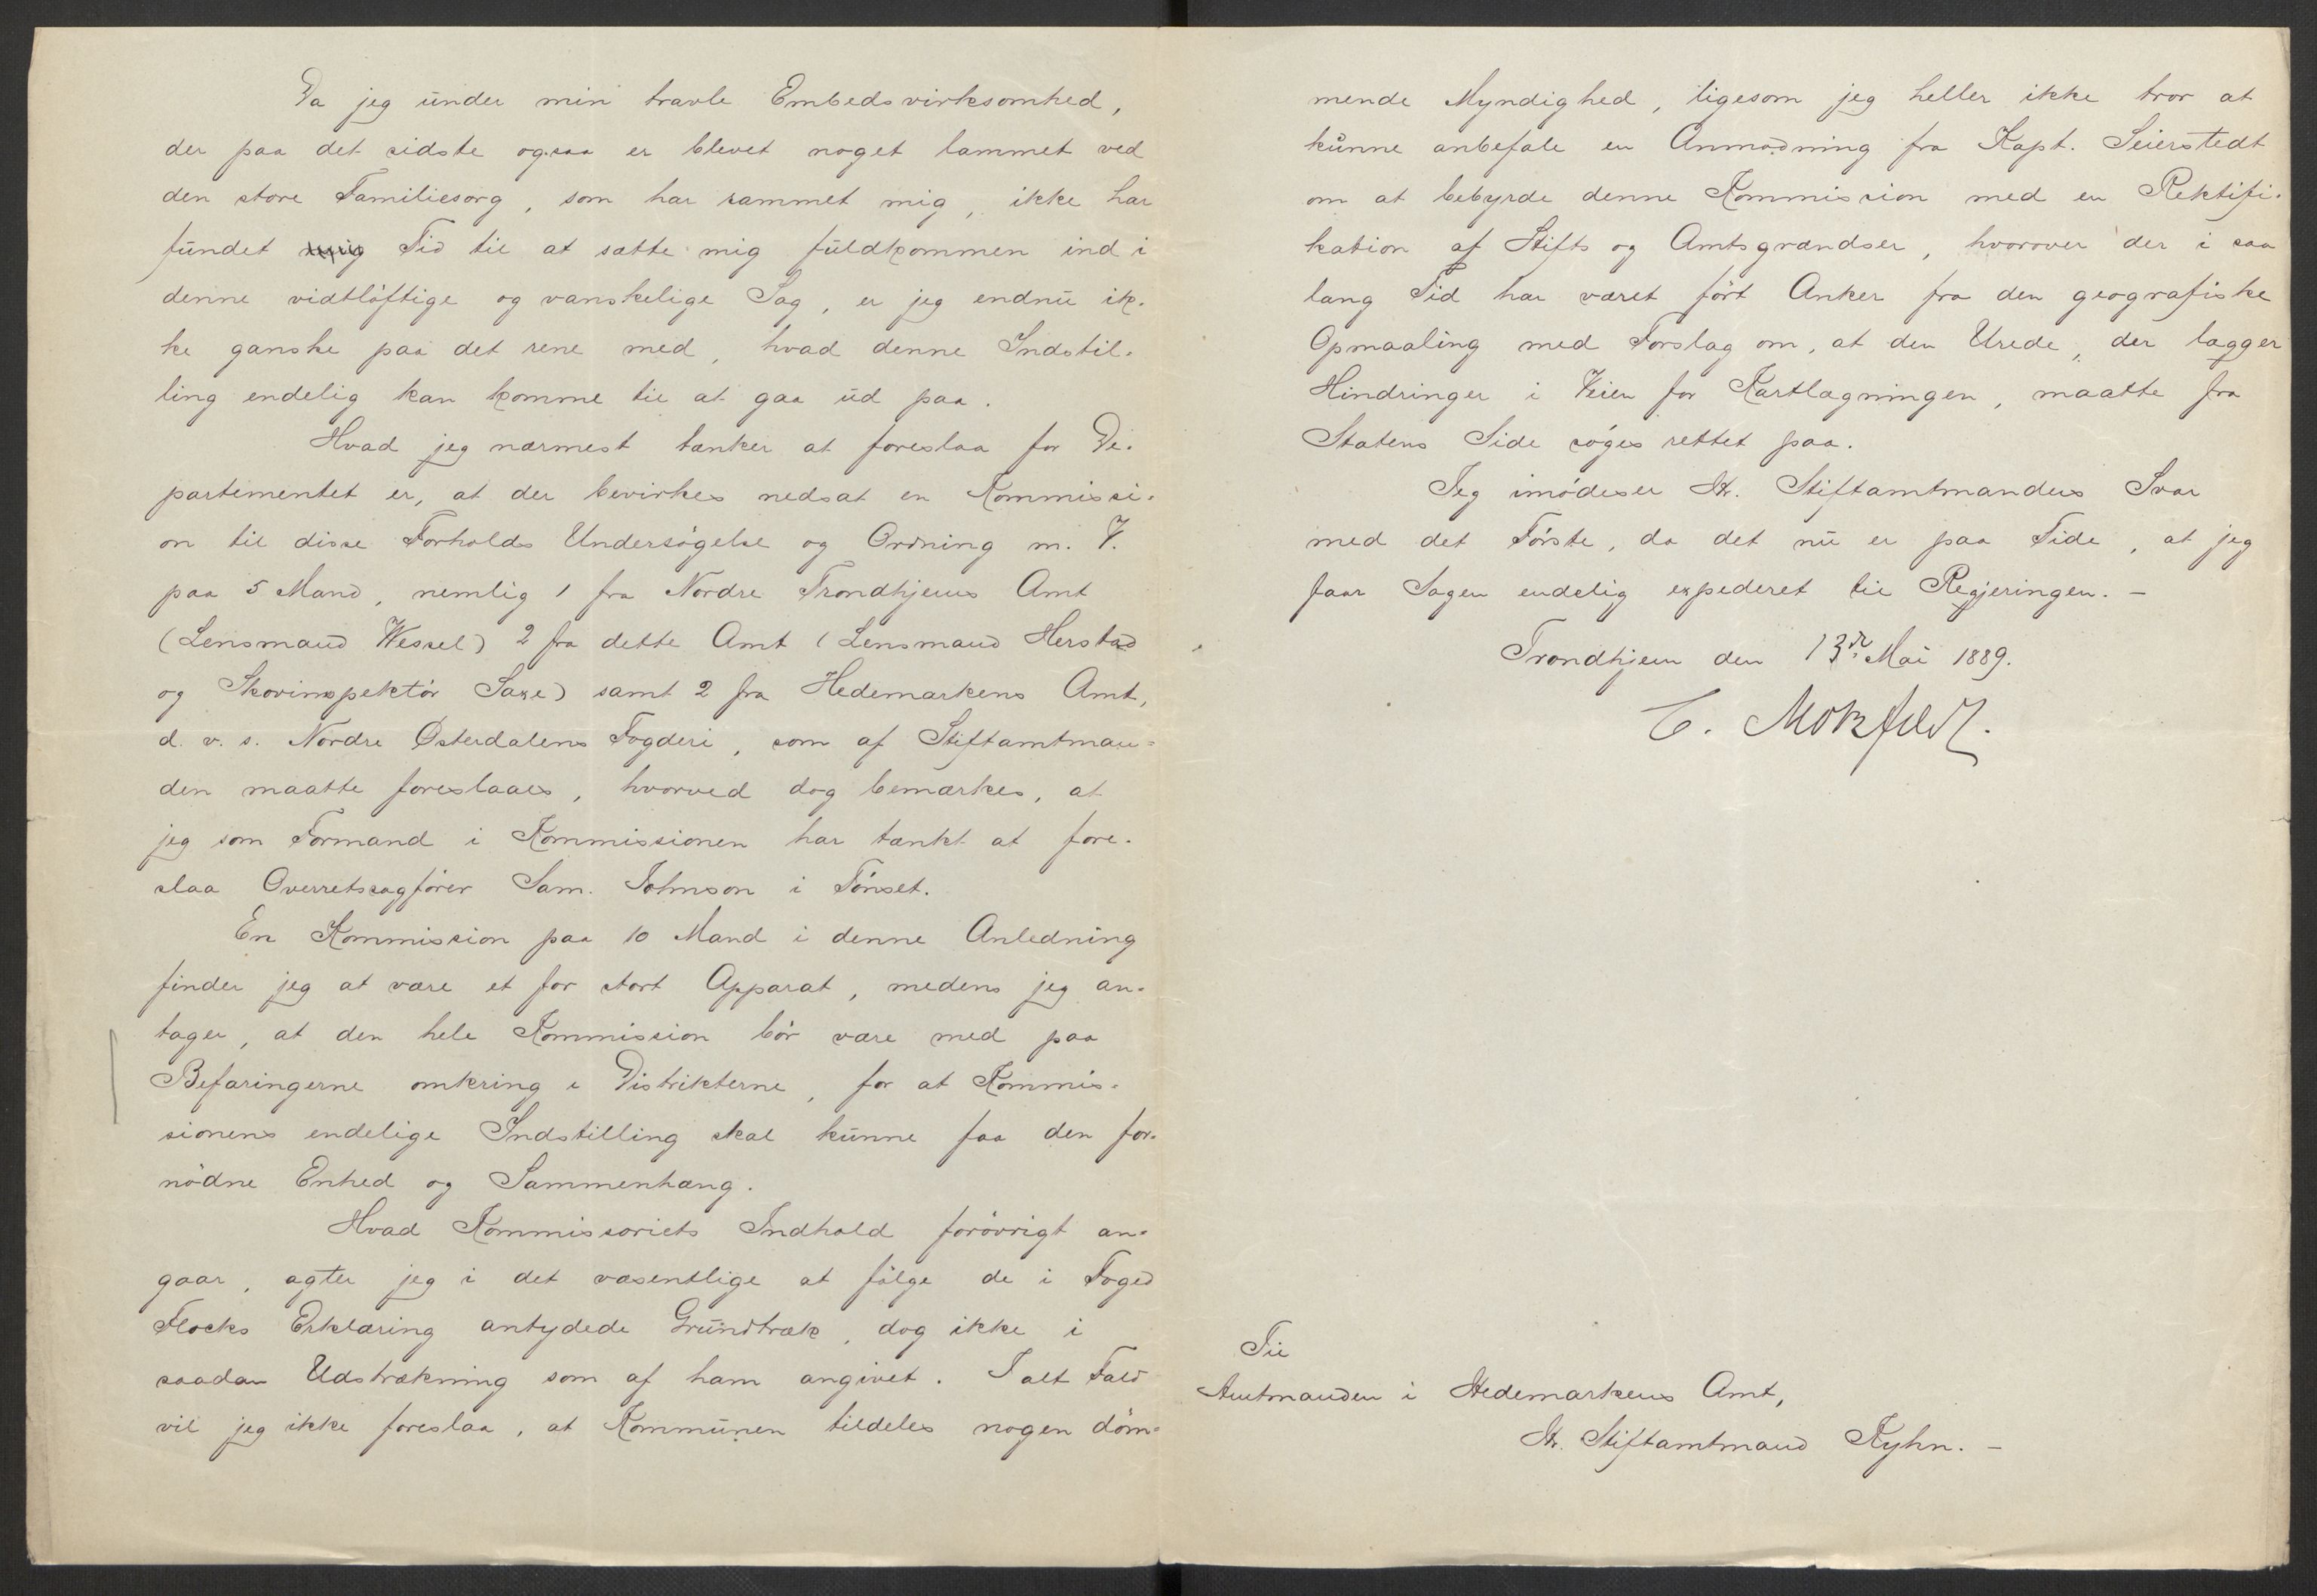 Da jeg under min travle Embedsvirksomhed,
der paa det sidste ogsaa er blevet noget lammet ved
den store Familiesorg, som har rammet mig, ikke har
fundet mig Tid til at sætte mig fuldkommen ind i
denne vidtløftige og vanskelige Sag, er jeg endnu ik-
ke ganske paa det rene med, hvad denne Indstil-
ling endelig kan komme til at gaa ud paa.
Hvad jeg nærmest tænker at foreslaa for De-
partementet er, at der bevirkes nedsat en Kommissi-
on til disse Forholds Undersøgelse og Ordning m. V.
paa 5 Mand, nemlig 1 fra Nordre Trondhjems Amt
(Lensmand Wessel) 2 fra dette Amt (Lensmand Herstad
og Skovinspektør Saxe) samt 2 fra Hedemarkens Amt,
d. v. s. Nordre Østerdalens Fogderi, som af Stiftamtman-
den maatte foreslaaes, hvorved dog bemærkes, at
jeg som Formand i Kommissionen har tænkt at fore-
slaa Overretssagfører Sam. Johnson i Tønset.
En Kommission paa 10 Mand i denne Anledning
finder jeg at være et for stort Apparat, medens jeg an-
tager, at den hele Kommission bør være med paa
Befaringerne omkring i Distrikterne, for at Kommis-
sionens endelige Indstilling skal kunne faa den for-
nødne Enhed og Sammenhæng.
Hvad Kommissoriets Indhold forøvrigt an-
gaar, agter jeg i det væsentlige at følge de i Foged
Flocks Erklæring antydede Grundtræk, dog ikke i
saadan Udstrækning som af ham angivet. I alt Fald
vil jeg ikke foreslaa, at Kommunen tildeles nogen døm-
mende Myndighed, ligesom jeg heller ikke tror at
kunne anbefale en Anmodning fra Kapt. Seierstedt
om at bebyrde denne Kommission med en Rektifi-
kation af Stifts og Amtsgrændser, hvorover der i saa
lang Tid har været ført Anker fra den geografiske
Opmaaling med Forslag om, at den Urede, der lægger
Hindringer i Veien for Kartlægningen, maatte fra
Statens Side søges rettet paa.
Jeg imødeser Hr. Stiftamtmandens Svar
med det Første, da det nu er paa Tide, at jeg
faar Sagen endelig expederet til Regjeringen. –
Trondhjem den 13de Mai 1889.
C. Motzfeldt.
Til
Amtmanden i Hedemarkens Amt,
Hr. Stiftamtmand Kyhn. –